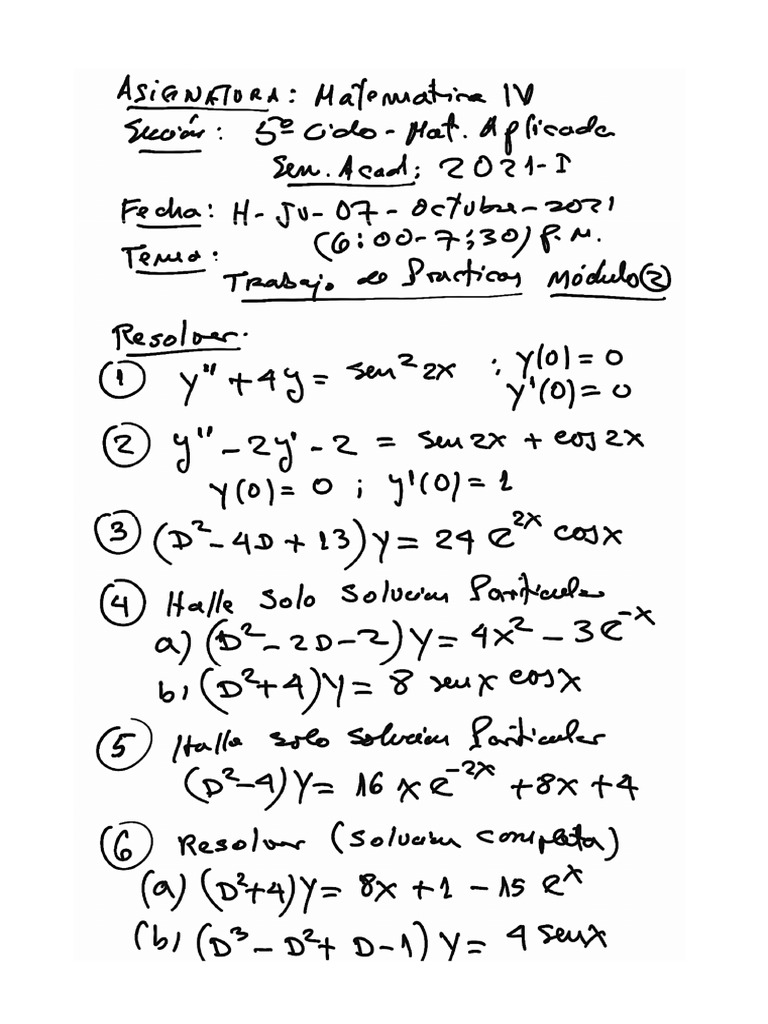 ASIGNATURA: Matematica IV
Sección: 5º Ciclo - Mat. Aplicada
Sem. Acad: 2021-I
Fecha: H - Ju - 07 - Octubre - 2021
(6:00-7:30) p.m.
Tema:
Trabajo de Practicas Módulo ②
Resolver.
① y'' + 4y = sen² 2x ; y(0) = 0
y'(0) = 0
② y'' - 2y' - 2 = sen 2x + cos 2x
y(0) = 0 ; y'(0) = 1
③ (D² - 4D + 13)y = 24 e^{2x} cosx
④ Halle solo solucion Particular
a) (D² - 2D - 2)y = 4x² - 3e^{-x}
b) (D² + 4)y = 8 senx cosx
⑤ Halle solo solucion Particular
(D² - 4)y = 16 x e^{-2x} + 8x + 4
⑥ Resolver (solucion completa)
(a) (D² + 4)y = 8x + 1 - 15 e^x
(b) (D³ - D² + D - 1)y = 4 senx